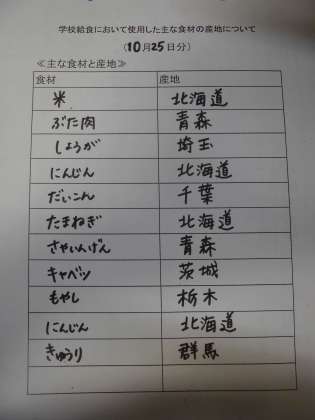 学校給食において使用した主な食材の産地について
(10月25日分)
≪主な食材と産地≫
食材 産地
米 北海道
ぶた肉 青森
しょうが 埼玉
にんじん 北海道
だいこん 千葉
たまねぎ 北海道
さやいんげん 青森
キャベツ 茨城
もやし 栃木
にんじん 北海道
きゅうり 群馬